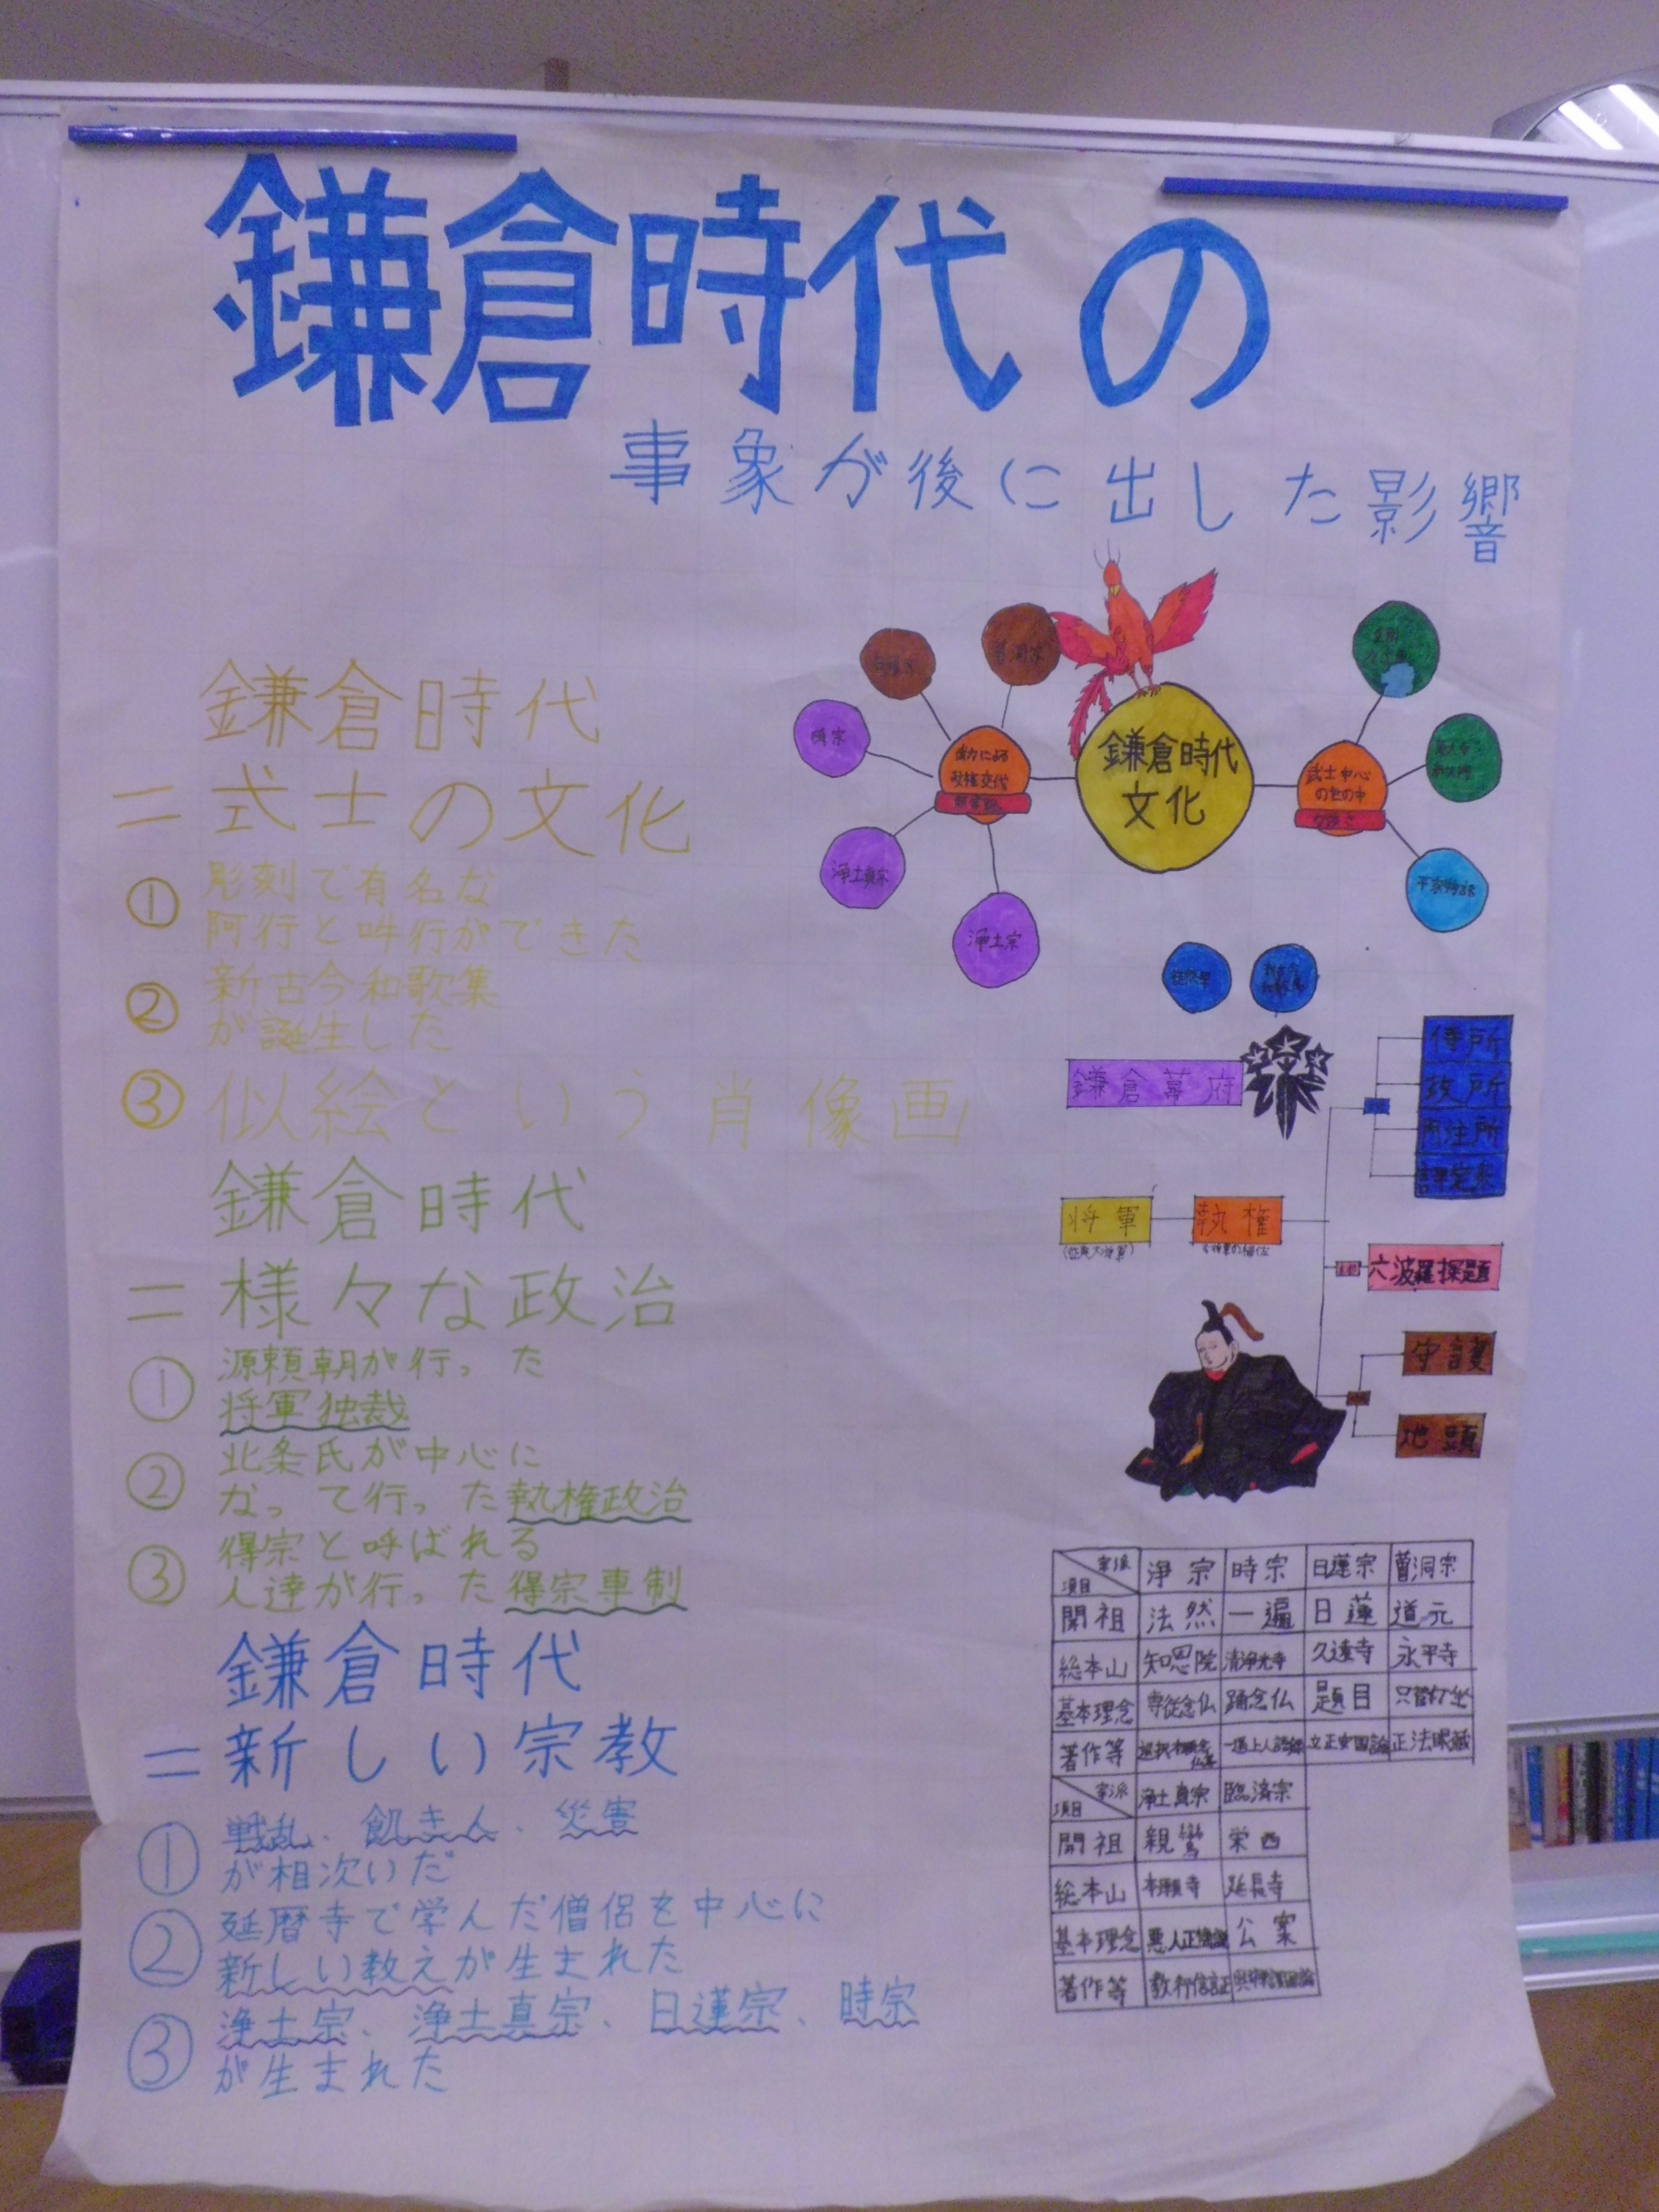 鎌倉時代の
事象が後に出した影響
鎌倉時代
＝式士の文化
① 彫刻で有名な
阿行と吽行ができた
② 新古今和歌集
が誕生した
③ 似絵という肖像画
鎌倉時代
＝様々な政治
① 源頼朝が行った
将軍独裁
② 北条氏が中心に
なって行った執権政治
③ 得宗と呼ばれる
人達が行った得宗専制
鎌倉時代
＝新しい宗教
① 戦乱、飢きん、災害
が相次いだ
② 延暦寺で学んだ僧侶を中心に
新しい教えが生まれた
③ 浄土宗、浄土真宗、日蓮宗、時宗
が生まれた
曹洞宗
時宗
浄土真宗
浄土宗
による
政権交代
鎌倉時代
文化
武士中心
の世の中
平家物語
徒然草
鎌倉幕府
侍所
政所
問注所
評定衆
将軍
(征夷大将軍)
執権
六波羅探題
守護
地頭
宗派 項目 浄宗 時宗 日蓮宗 曹洞宗
開祖 法然 一遍 日蓮 道元
総本山 知恩院 清浄光寺 久遠寺 永平寺
基本理念 専従念仏 踊念仏 題目 只管打坐
著作等 一遍上人語録 立正安国論 正法眼蔵
宗派 項目 浄土真宗 臨済宗
開祖 親鸞 栄西
総本山 本願寺 延長寺
基本理念 悪人正機説 公案
著作等 教行信証 興禅護国論